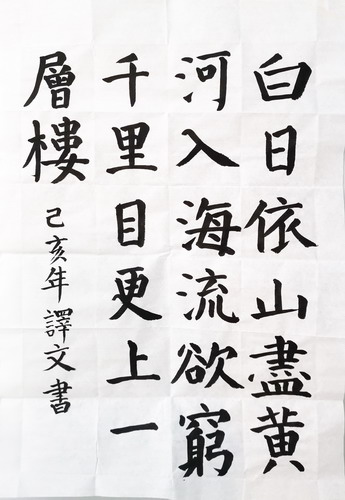 白日依山盡黄
河入海流欲窮
千里目更上一
層樓
己亥年譯文書